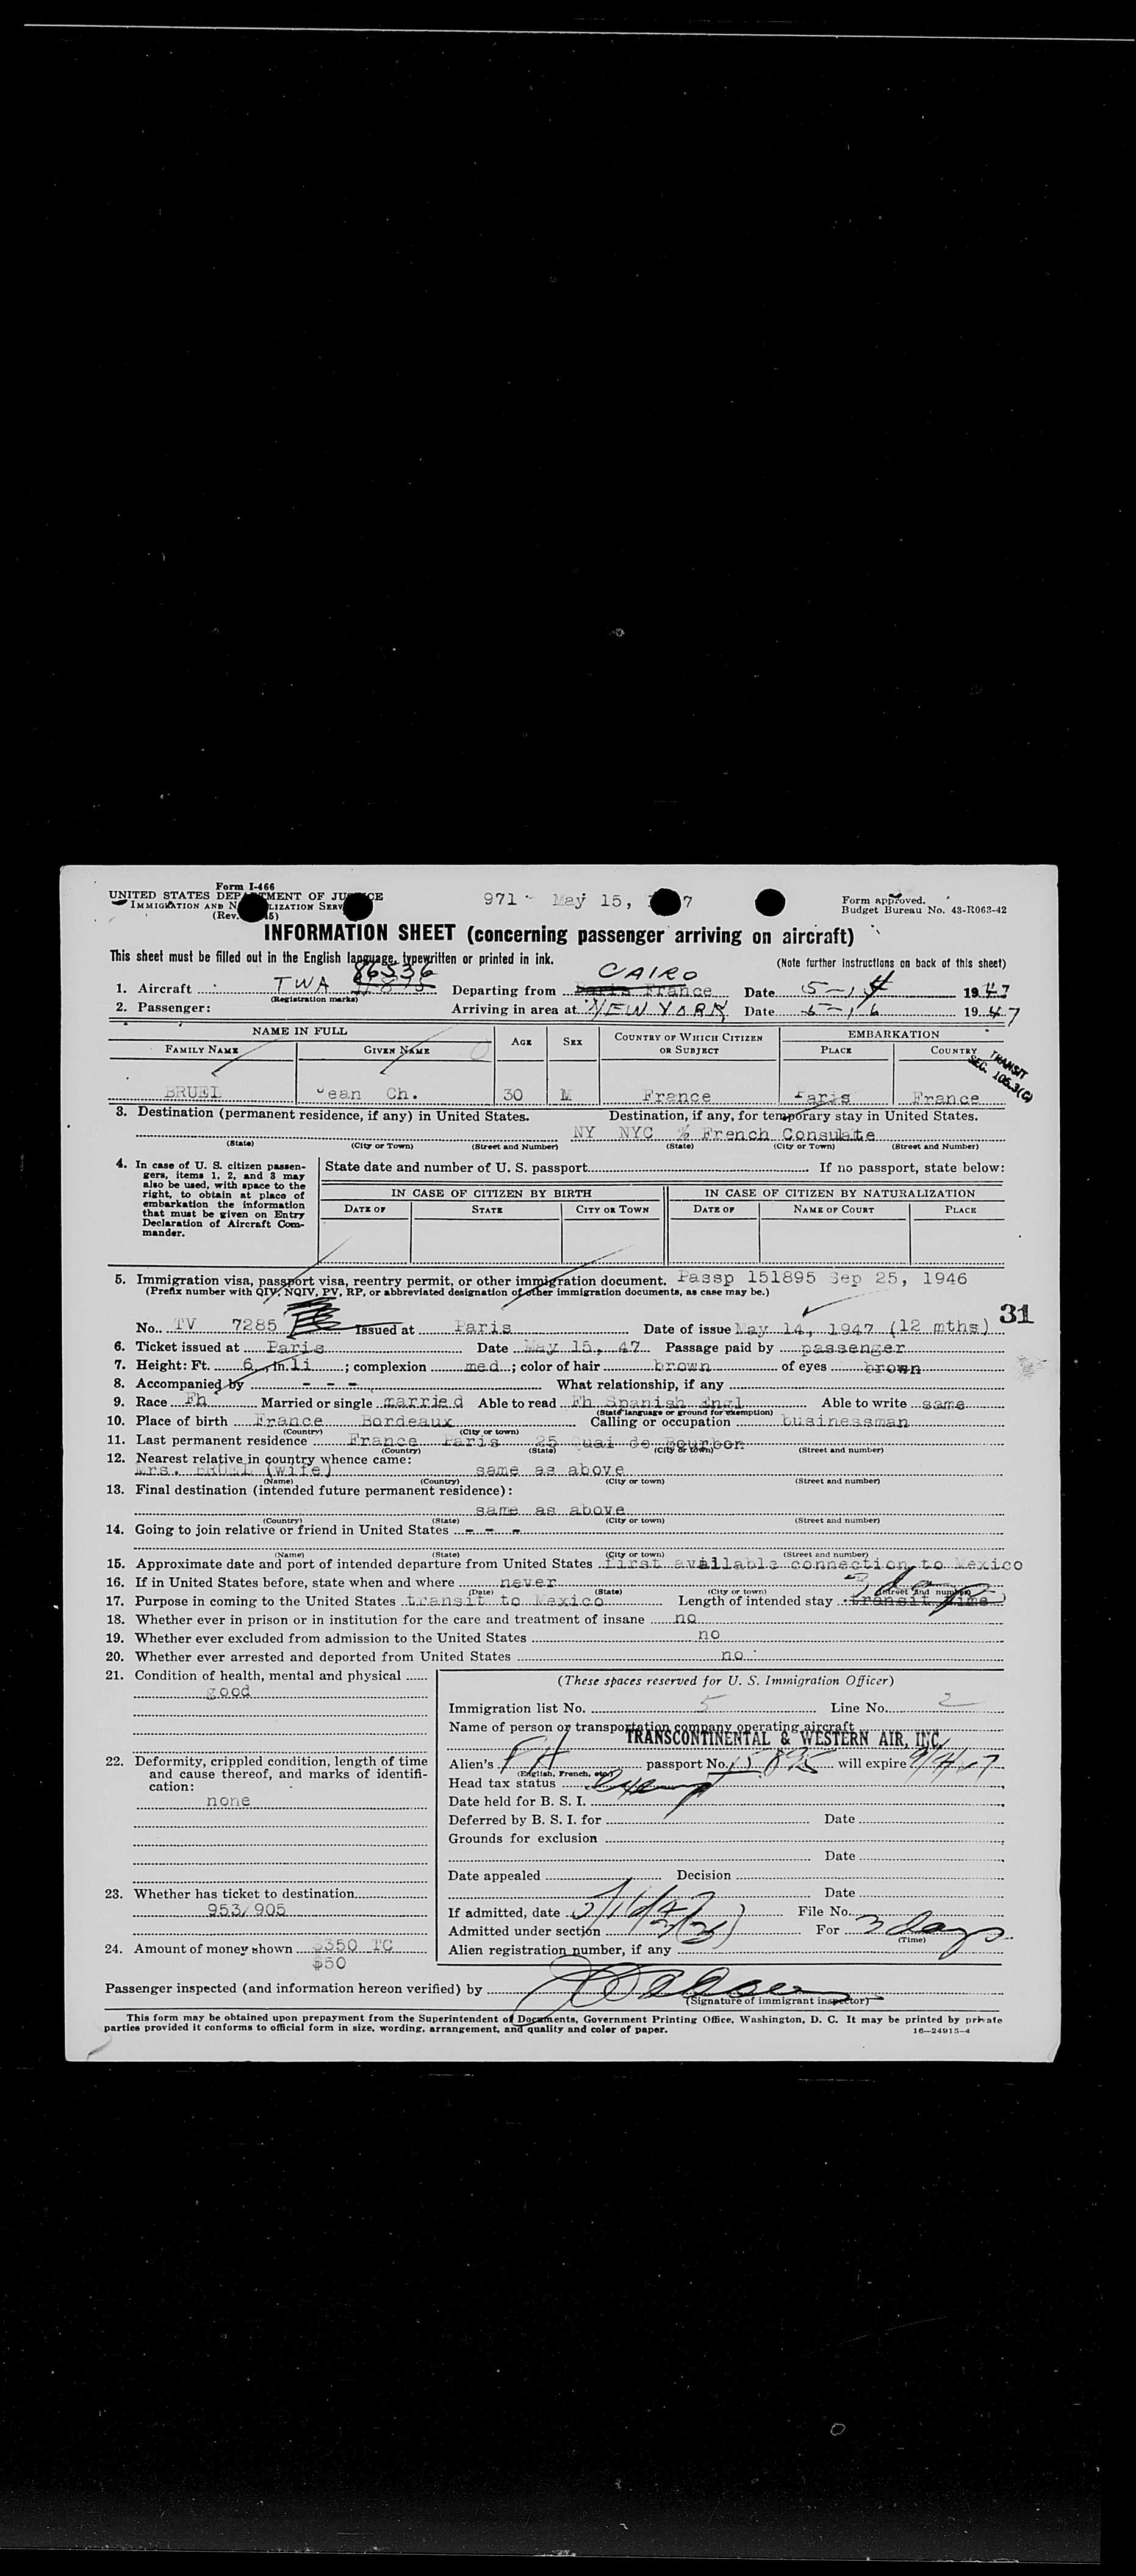 Form I-466
UNITED STATES DEPARTMENT OF JUSTICE
IMMIGRATION AND NATURALIZATION SERVICE
(Rev. 45)
971 - May 15, 1947
Form approved.
Budget Bureau No. 43-R063-42
INFORMATION SHEET (concerning passenger arriving on aircraft)
This sheet must be filled out in the English language, typewritten or printed in ink.
(Note further instructions on back of this sheet)
86536
CAIRO
1. Aircraft TWA Departing from Paris France Date 5-14 1947
(Registration marks)
2. Passenger: Arriving in area at NEW YORK Date 5-16 1947
NAME IN FULL
FAMILY NAME GIVEN NAME AGE SEX COUNTRY OF WHICH CITIZEN OR SUBJECT EMBARKATION PLACE COUNTRY
TRANSIT
SEC. 105.3(C)
BRUEL Jean Ch. 30 M France Paris France
3. Destination (permanent residence, if any) in United States. Destination, if any, for temporary stay in United States.
NY NYC % French Consulate
(State) (City or Town) (Street and Number) (State) (City or Town) (Street and Number)
4. In case of U. S. citizen passengers, items 1, 2, and 3 may also be used, with space to the right, to obtain at place of embarkation the information that must be given on Entry Declaration of Aircraft Commander.
State date and number of U. S. passport If no passport, state below:
IN CASE OF CITIZEN BY BIRTH IN CASE OF CITIZEN BY NATURALIZATION
DATE OF STATE CITY OR TOWN DATE OF NAME OF COURT PLACE
5. Immigration visa, passport visa, reentry permit, or other immigration document. Passp 151895 Sep 25, 1946
(Prefix number with QIV, NQIV, PV, RP, or abbreviated designation of other immigration documents, as case may be.)
31
No. TV 7285 Issued at Paris Date of issue May 14, 1947 (12 mths)
6. Ticket issued at Paris Date May 15, 47 Passage paid by passenger
7. Height: Ft. 6, in. 11; complexion med; color of hair brown of eyes brown
8. Accompanied by - - - What relationship, if any
9. Race Fh Married or single married Able to read Fh Spanish Engl Able to write same
(State language or ground for exemption)
10. Place of birth France Bordeaux Calling or occupation businessman
(Country) (City or town)
11. Last permanent residence France Paris 25 Quai de Bourbon
(Country) (State) (City or town) (Street and number)
12. Nearest relative in country whence came:
Mrs. BRUEL (wife) same as above
(Name) (Country) (City or town) (Street and number)
13. Final destination (intended future permanent residence):
same as above
(Country) (State) (City or town) (Street and number)
14. Going to join relative or friend in United States - - -
(Name) (State) (City or town) (Street and number)
15. Approximate date and port of intended departure from United States first available connection to Mexico
16. If in United States before, state when and where never
(Date) (State) (City or town) (Street and number)
3 days
17. Purpose in coming to the United States transit to Mexico Length of intended stay transit time
18. Whether ever in prison or in institution for the care and treatment of insane no
19. Whether ever excluded from admission to the United States no
20. Whether ever arrested and deported from United States no
21. Condition of health, mental and physical
good
22. Deformity, crippled condition, length of time and cause thereof, and marks of identification:
none
23. Whether has ticket to destination
953/905
24. Amount of money shown $350 TC
$50
(These spaces reserved for U. S. Immigration Officer)
Immigration list No. 5 Line No. 2
Name of person or transportation company operating aircraft
TRANSCONTINENTAL & WESTERN AIR, INC.
Alien's FH passport No. 15895 will expire
(English, French, etc.)
Head tax status Exempt
Date held for B. S. I.
Deferred by B. S. I. for Date
Grounds for exclusion
Date
Date appealed Decision
Date
If admitted, date 5/16/47 File No.
Admitted under section 3(3) For 3 days
(Time)
Alien registration number, if any
Passenger inspected (and information hereon verified) by
(Signature of immigrant inspector)
This form may be obtained upon prepayment from the Superintendent of Documents, Government Printing Office, Washington, D. C. It may be printed by private
parties provided it conforms to official form in size, wording, arrangement, and quality and color of paper.
16-24915-4